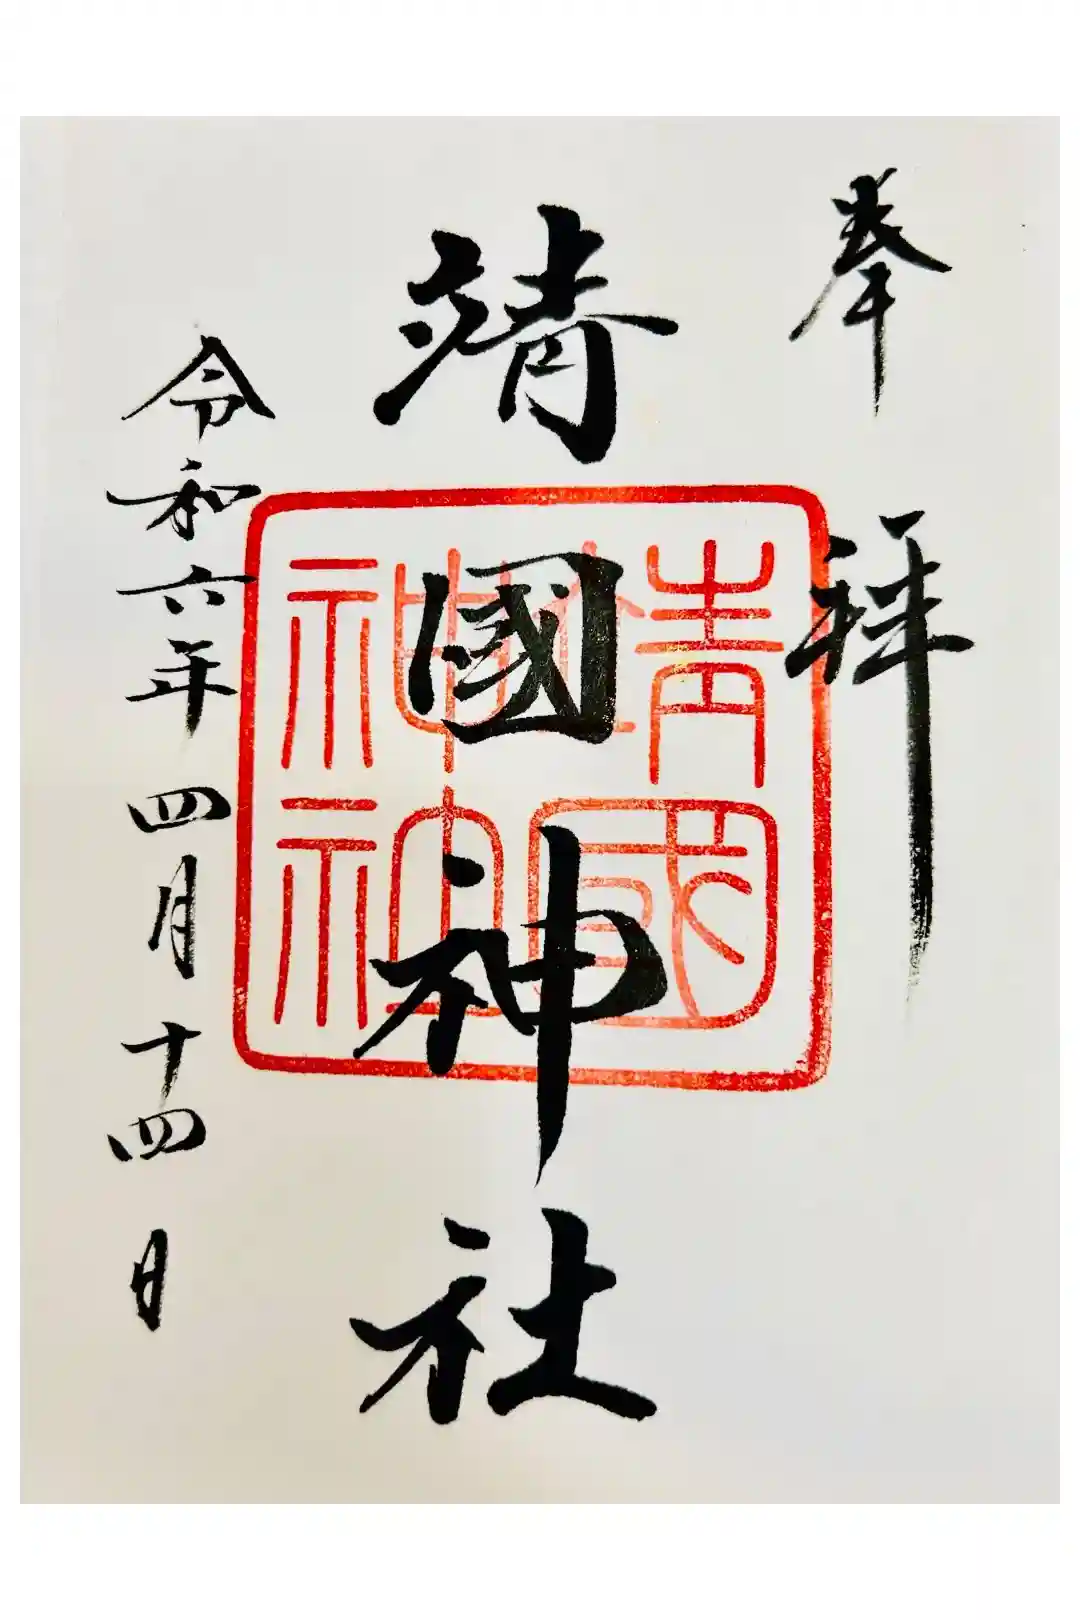 奉拝
靖國神社
令和六年四月十四日
靖國
神社